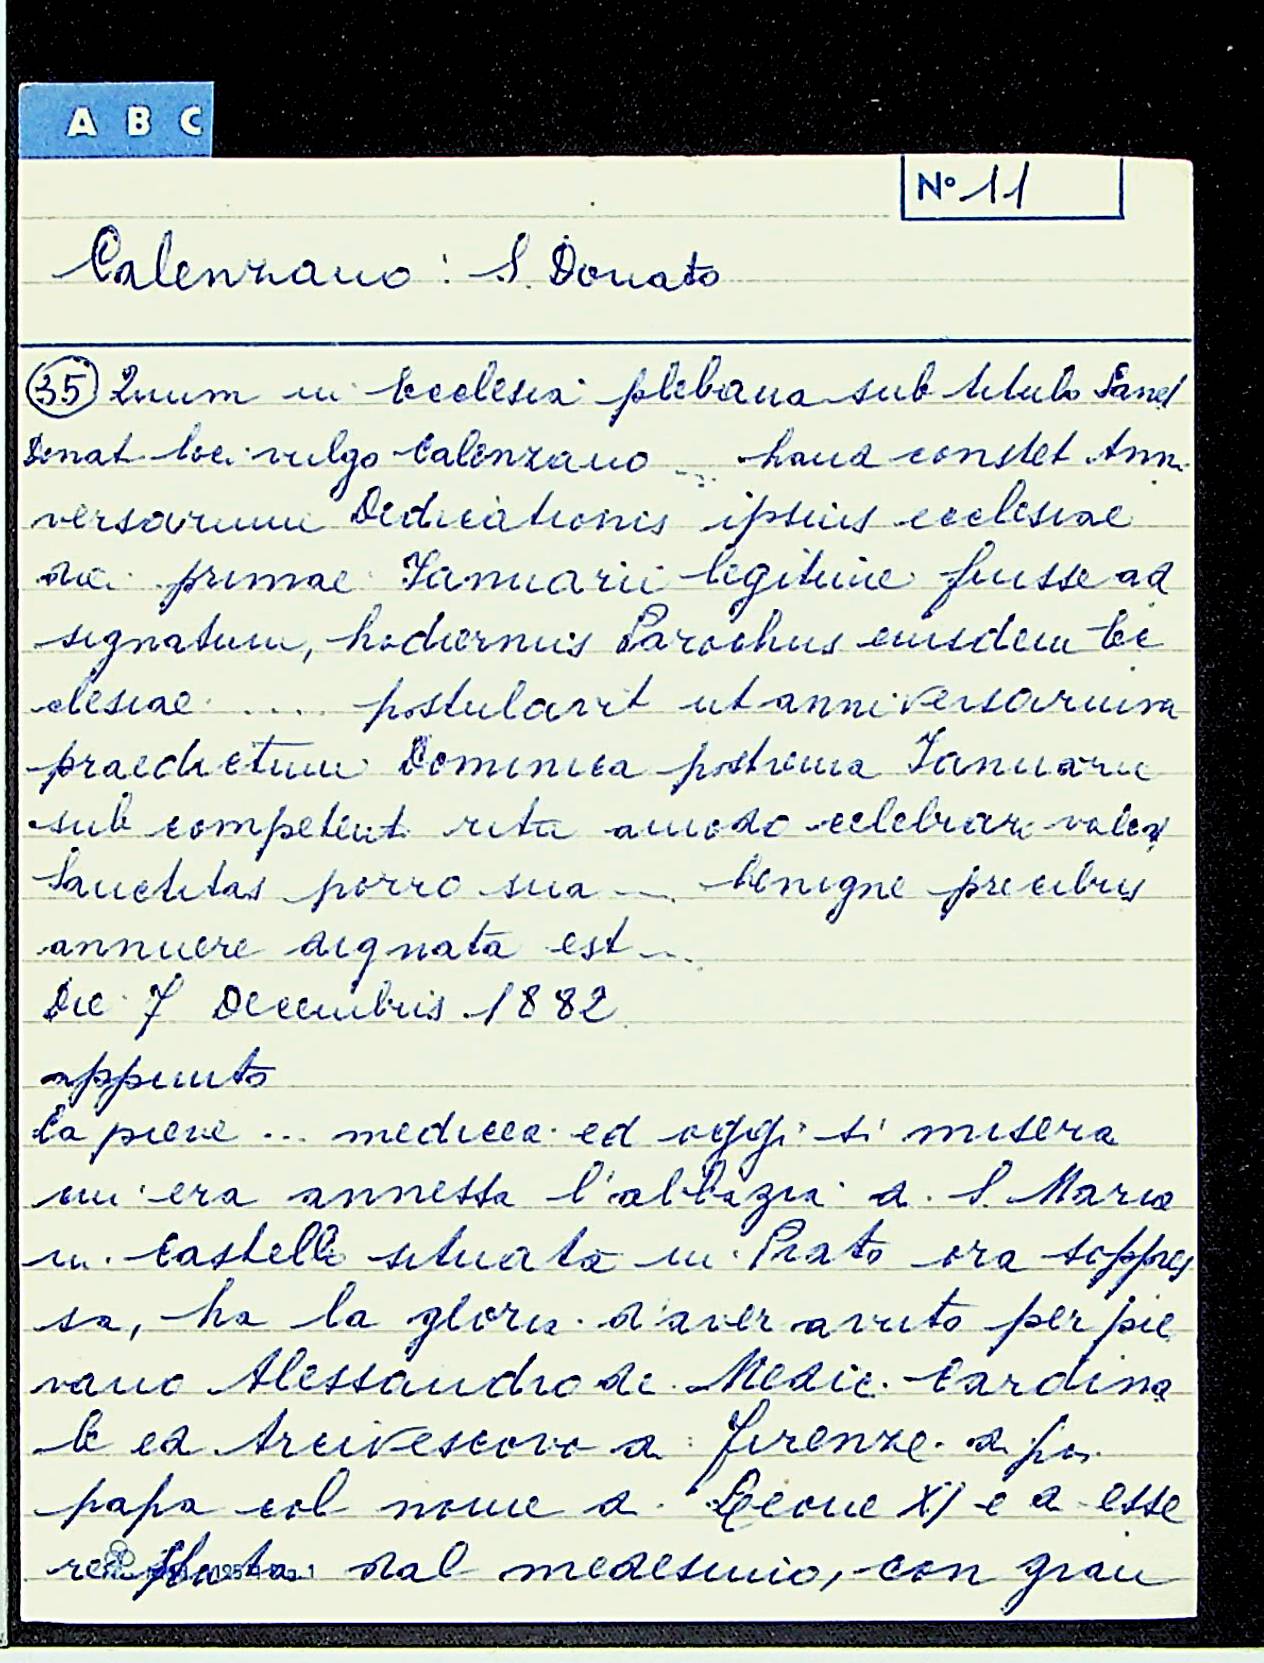 A B C
N° 11
Calenzano: S. Donato
(35) Quum in Ecclesia plebana sub titulo Sanct
Donati loci vulgo Calenzano ... haud constet Anni
versarium Dedicationis ipsius ecclesiae
diei primae Januarii legitime fuisse ad
signatum, hodiernus Parochus eiusdem Ec
clesiae .... postulavit ut anniversarium
praedictum Dominica postrema Januarii
sub competenti ritu amodo celebrari valeat
Sanctitas porro sua ... benigne precibus
annuere dignata est ...
Die 7 Decembris 1882
appunto
La pieve ... medicea ed oggi sì misera
cui era annessa l'abbazia di S. Maria
in Castello situata in Prato ora soppres
sa, ha la gloria d'aver avuto per pie
vano Alessandro de Medici Cardina
le ed Arcivescovo di Firenze di poi
papa col nome di Leone XI e di esse
re dal medesimo, con gran